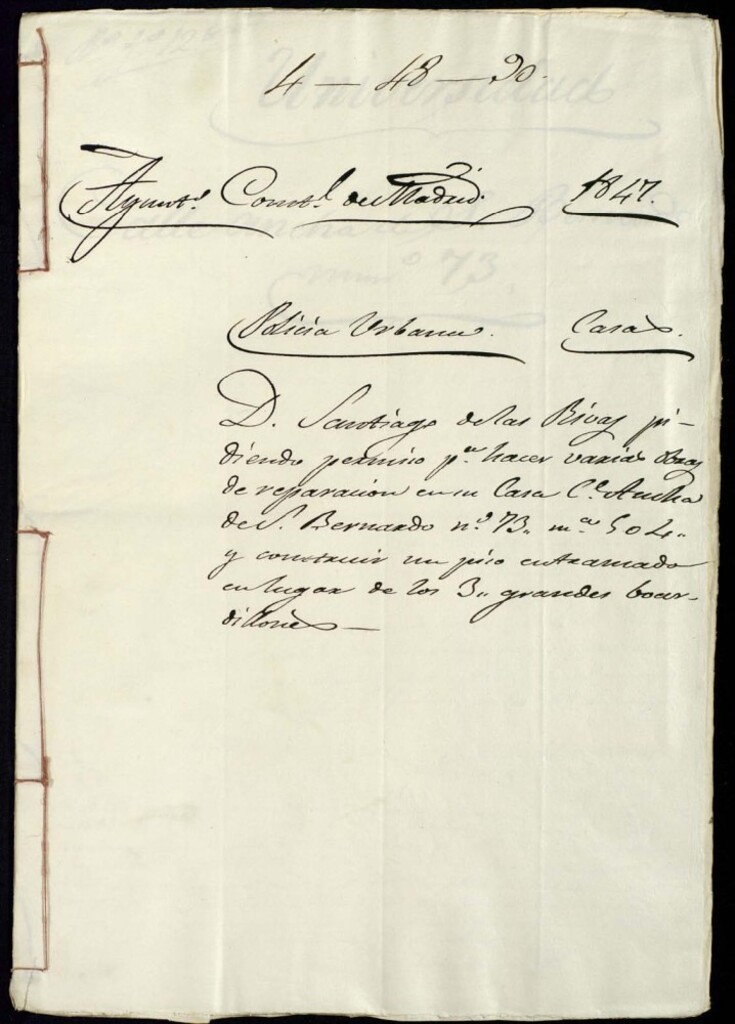 4 - 48 - 90.
Ayunt.º Const.l de Madrid. 1847.
Policia Urbana. Casas.
D. Santiago de las Rivas pi-
diendo permiso p.ª hacer varias obras
de reparacion en su Casa C.e Ancha
de S. Bernardo n.º 73,, m.na 504,,
y construir un piso entramado
en lugar de los 3,, grandes boar-
dillones —